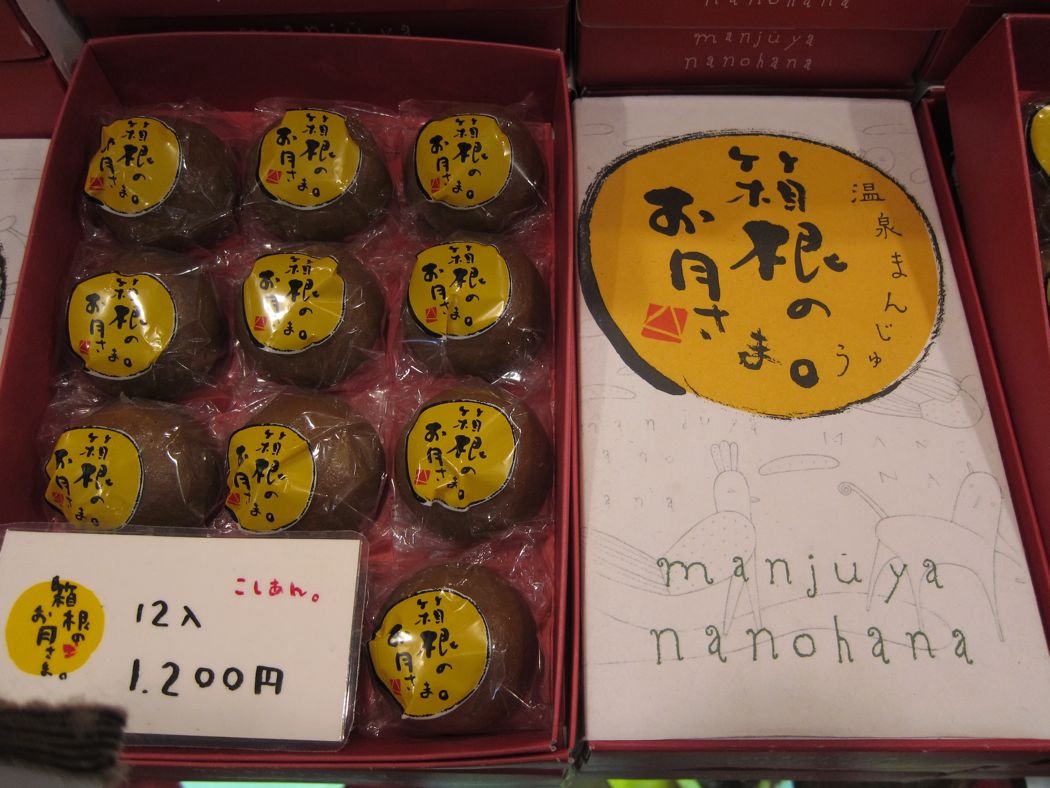 nanohana
manjūya
manjūya
nanohana
箱根の
お月さま。
箱根の
お月さま。
箱根の
お月さま。
箱根の
お月さま。
箱根の
お月さま。
箱根の
お月さま。
箱根の
お月さま。
箱根の
お月さま。
箱根の
お月さま。
箱根の
お月さま。
箱根の
お月さま。
こしあん。
12入
1.200円
温泉まんじゅう
箱根の
お月さま。
manjūya
nanohana